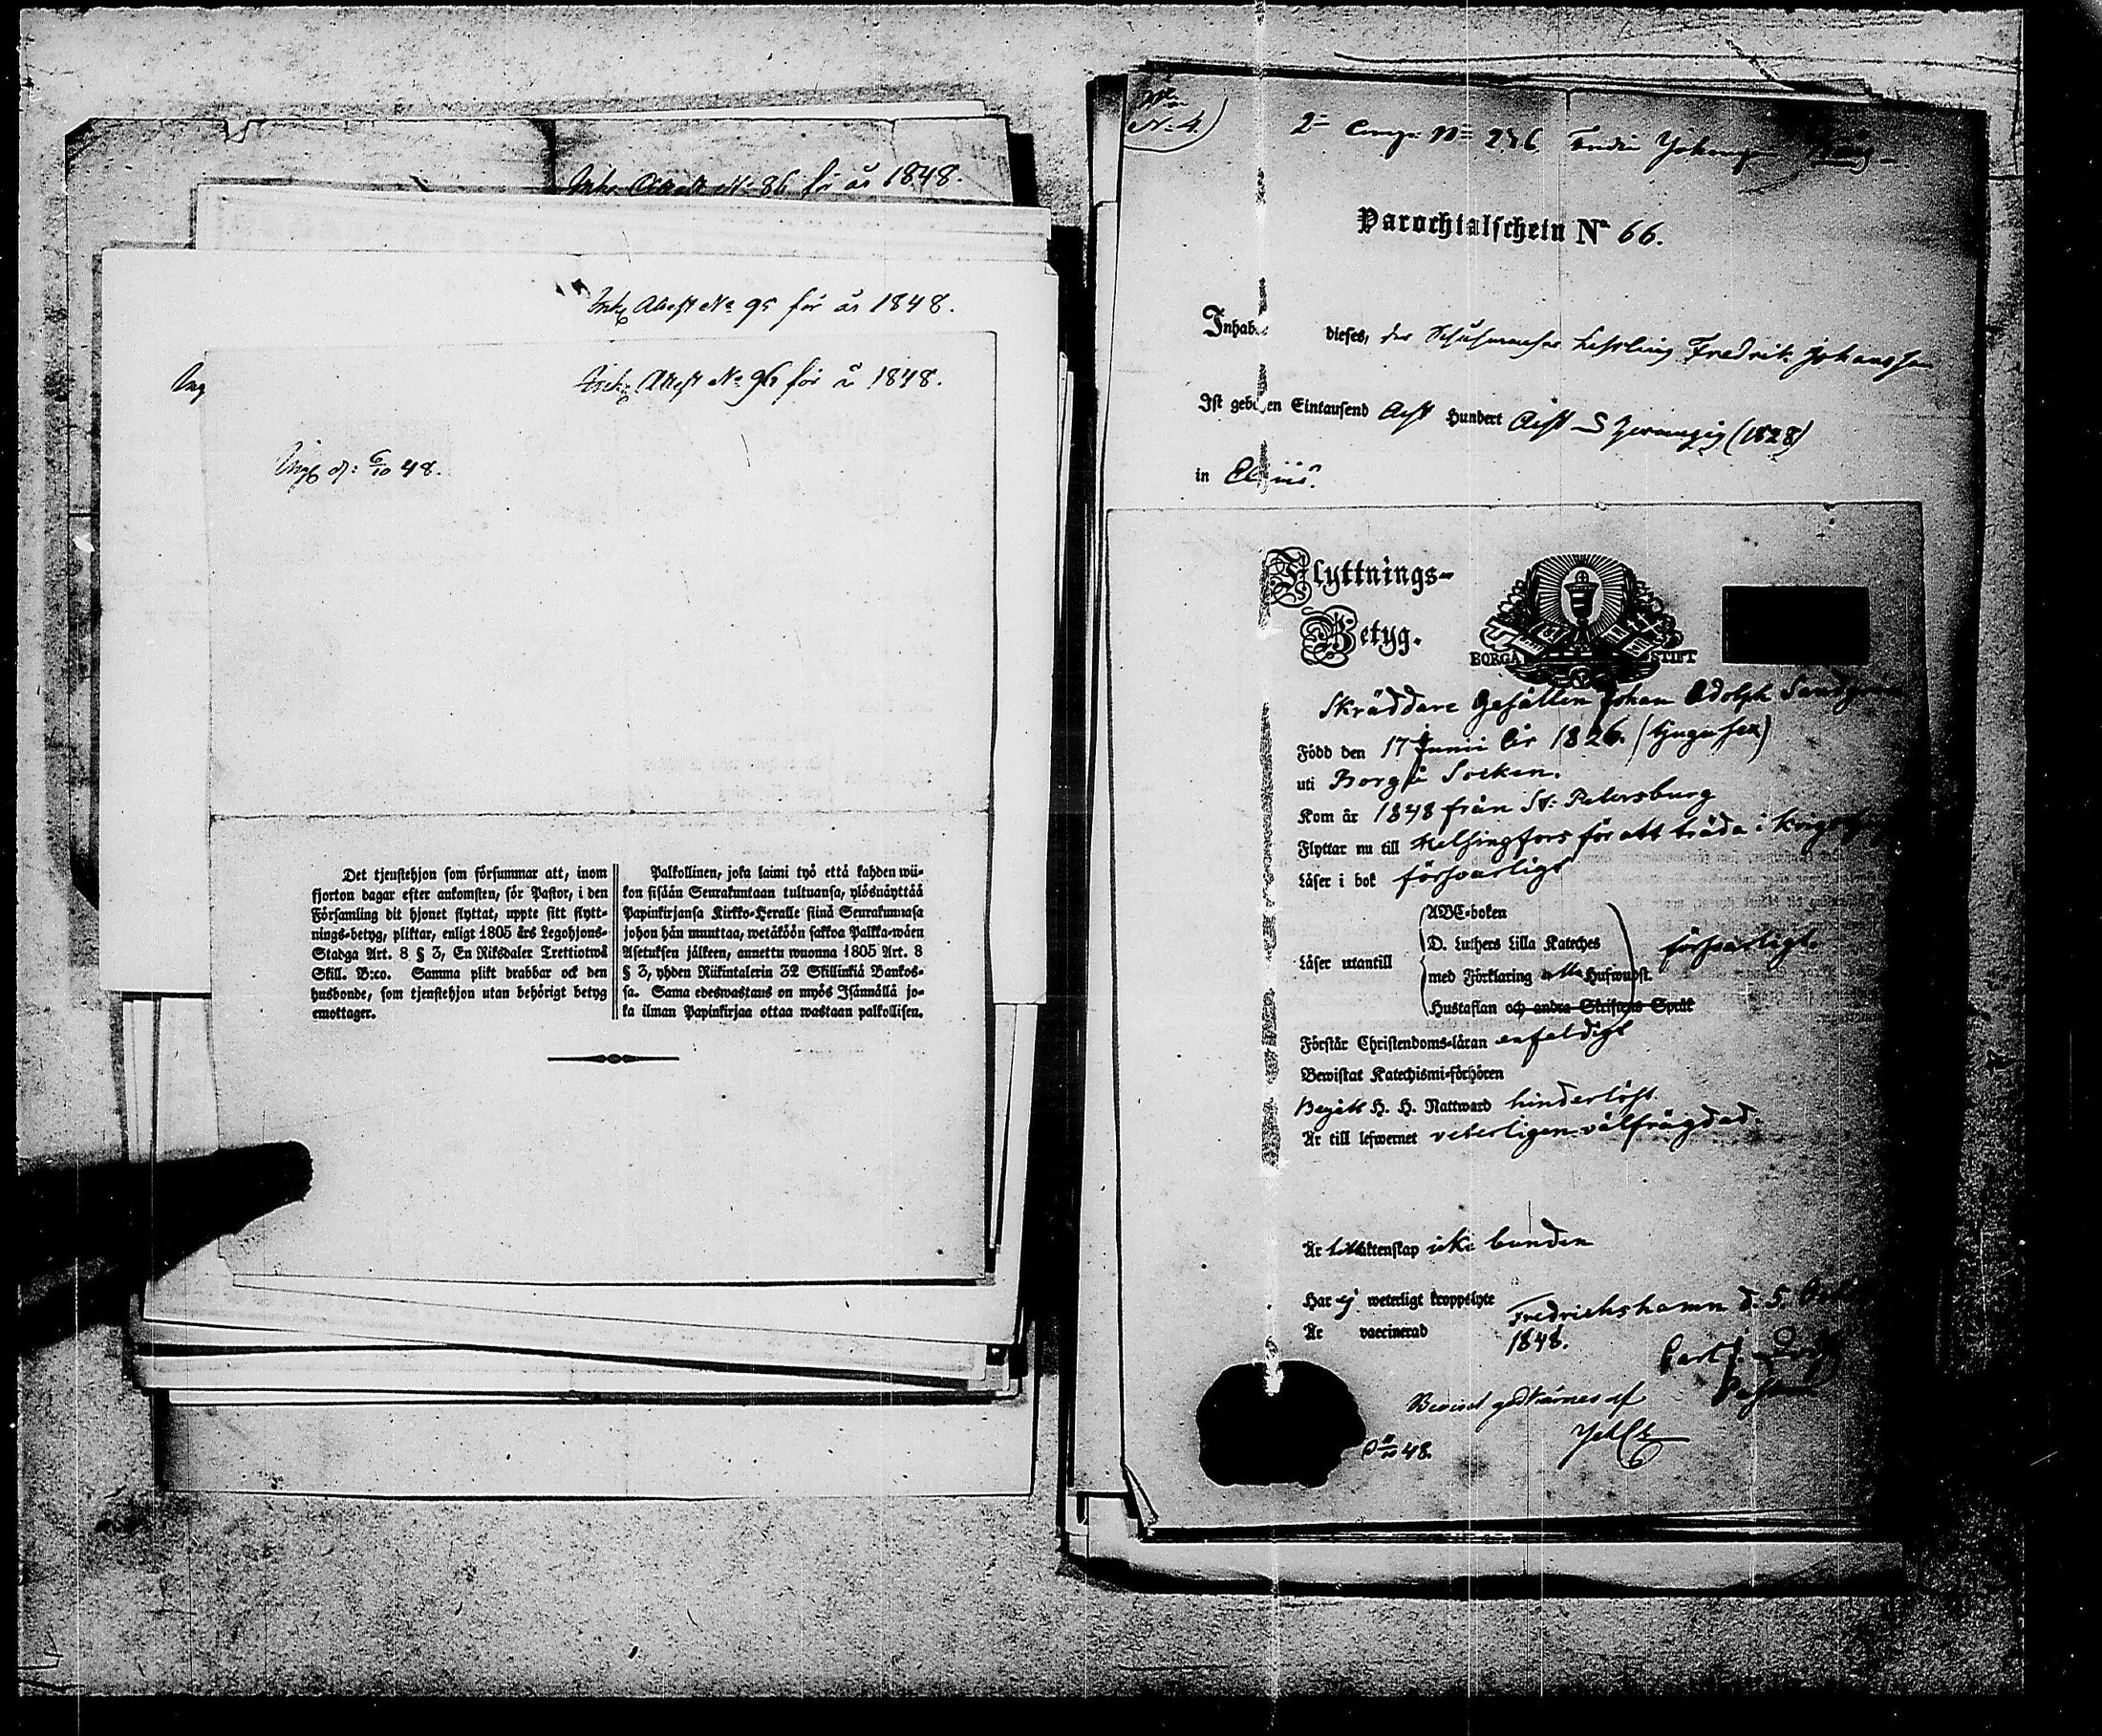 för år 1848.
Attest No 95 för år 1848.
Attest No 96 för år 1848.
d: 6/10 48.
Det tjenstehjon som försummar att, inom
fjorton dagar efter ankomsten, för Pastor, i den
Församling dit hjonet flyttat, uppte sitt flytt-
nings-betyg, pliktar, enligt 1805 års Legohjons-
Stadga Art. 8 § 3, En Riksdaler Trettiotwå
Skill. B:co. Samma plikt drabbar ock den
husbonde, som tjenstehjon utan behörigt betyg
emottager.
Palkollinen, joka laimi lyö että kahden wii-
kon sisään Seurakuntaan tultuansa, ylösnäyttää
Papinkirjansa Kirkko-Herralle siinä Seurakunnasa
johon hän muuttaa, wetäköön sakkoa Palkka-wäen
Asetuksen jälkeen, annettu wuonna 1805 Art. 8
§ 3, yhden Riikintalerin 32 Skillinkiä Bankos-
sa. Sama edeswastaus on myös Isännällä jo-
ka ilman Papinkirjaa ottaa wastaan palkollisen.
No 4.
Parochialschein No 66.
dieses, der Schuhmacher Lehrling Fredrik Johansson
Ist geboren Eintausend Acht Hundert Acht & Zwanzig (1828)
in
Flyttnings-
Betyg.
BORGÅ STIFT
Skräddare Gesällen Johan Adolph
Född den 17 Junii år 1826. (tjugusex)
uti Borgå Socken.
Kom år 1848 från St: Petersburg
Flyttar nu till Helsingfors för att träda i
Läser i bok försvarligt
Läser utantill
ABC-boken
D. Luthers Lilla Kateches
med Förklaring alla Hufwudst.
Hustaflan och andra Skriftens Språk
försvarligt.
Förstår Christendoms-läran enfaldigt
Bewistat Katechismi-förhören
Begått H. H. Nattward hinderlöst.
Är till lefwernet veterligen välfrägdad.
Är till äktenskap icke bunden
Har ej weterligt kroppslyte
Är vaccinerad
Fredrichshamn d. 5.
1848.
Carl
Beviset godkännes af
48.